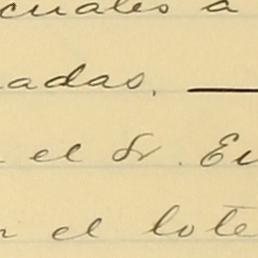 cuales a
adas. —
n el Sr. Eu
n el lote